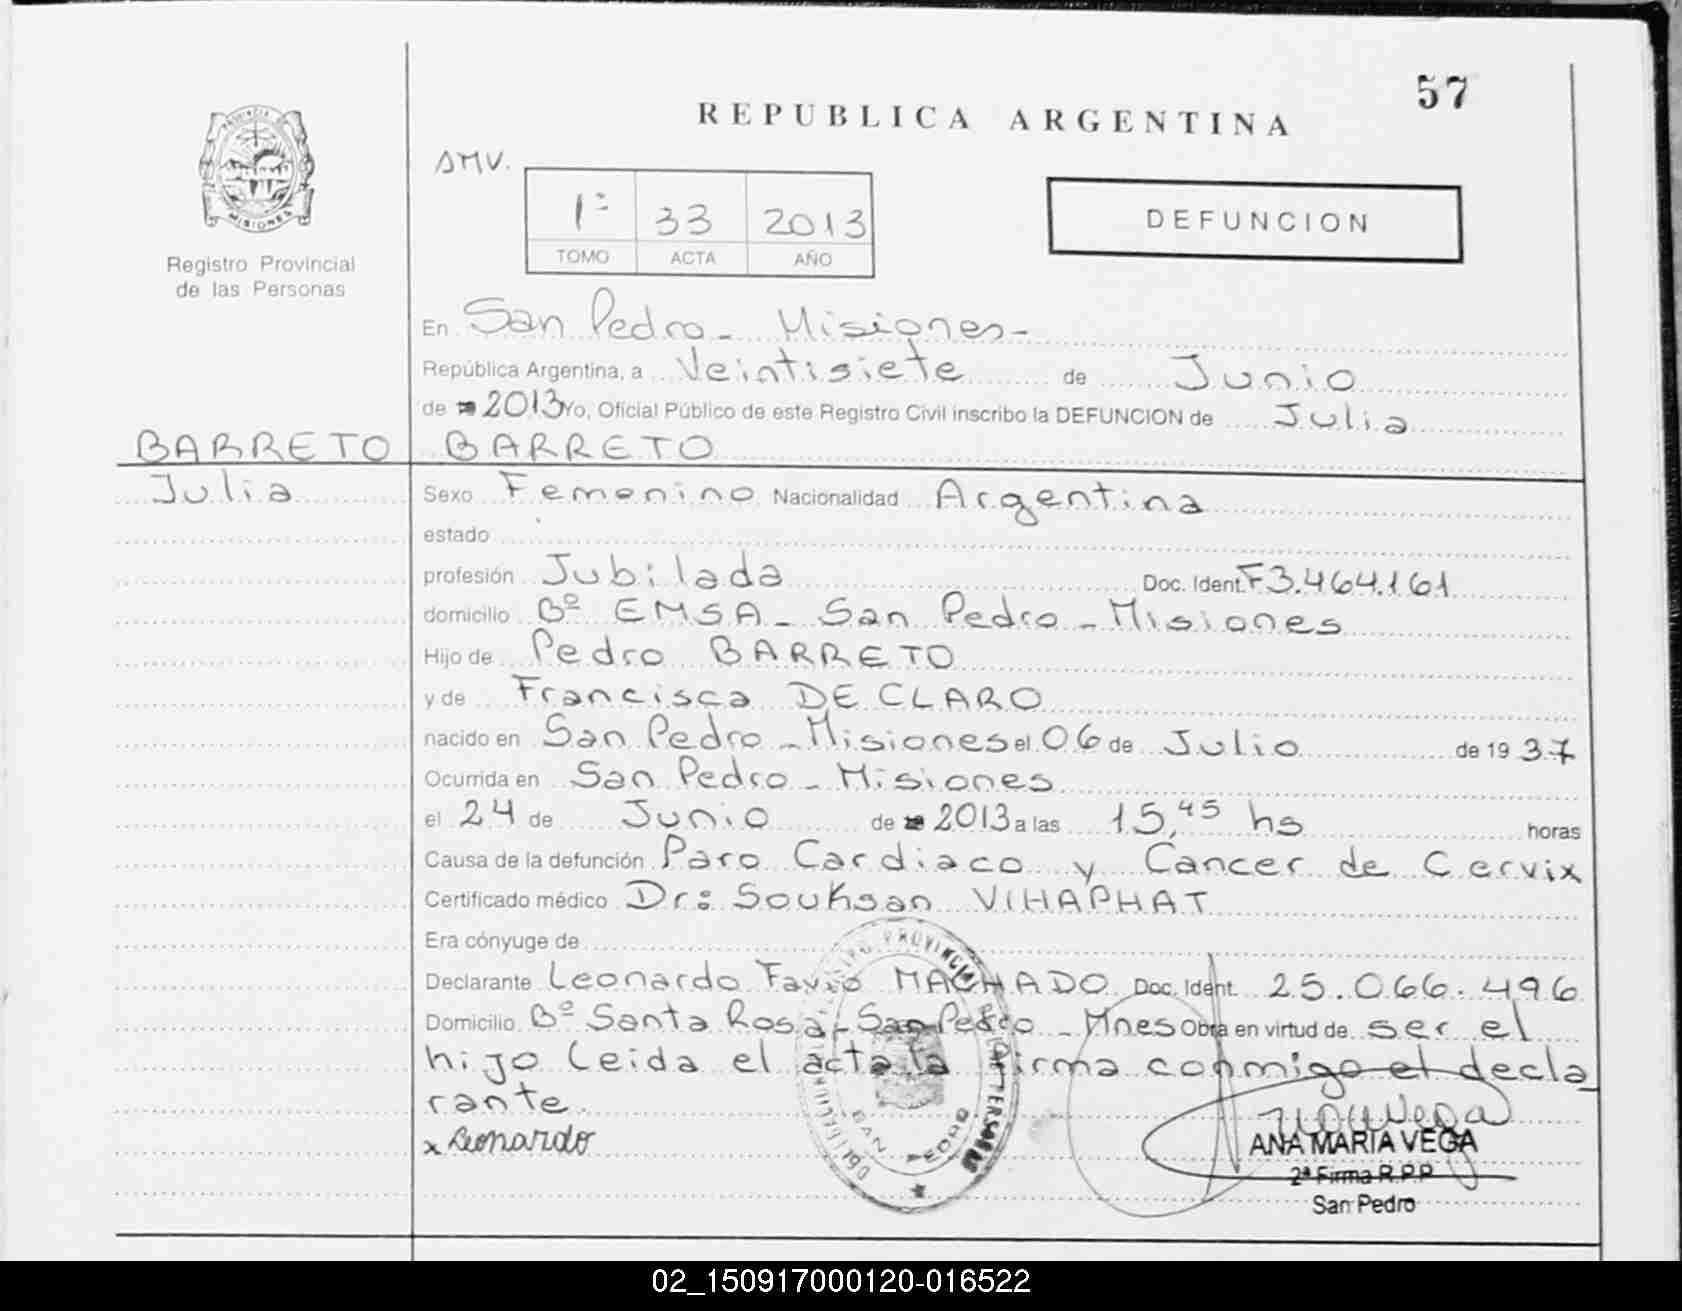 57
REPUBLICA ARGENTINA
PROVINCIA DE MISIONES
Registro Provincial
de las Personas
AMV.
1º 33 2013
TOMO ACTA AÑO
DEFUNCION
En San Pedro - Misiones -
República Argentina, a Veintisiete de Junio
de 2013 Yo, Oficial Público de este Registro Civil inscribo la DEFUNCION de Julia
BARRETO
BARRETO
Julia
Sexo Femenino Nacionalidad Argentina
estado
profesión Jubilada Doc. Ident. F3.464.161
domicilio Bº EMSA - San Pedro - Misiones
Hijo de Pedro BARRETO
y de Francisca DE CLARO
nacido en San Pedro - Misiones el 06 de Julio de 1937
Ocurrida en San Pedro - Misiones
el 24 de Junio de 2013 a las 15,45 hs horas
Causa de la defunción Paro Cardiaco y Cancer de Cervix
Certificado médico Dr: Souksan VIHAPHAT
Era cónyuge de
Declarante Leonardo Favio MACHADO Doc. Ident. 25.066.496
Domicilio Bº Santa Rosa - San Pedro - Mnes Obra en virtud de ser el
hijo leida el acta la firma conmigo el decla
rante.
x Leonardo
SAN PEDRO
ANA MARIA VEGA
2ª Firma R.P.P
San Pedro
02_150917000120-016522